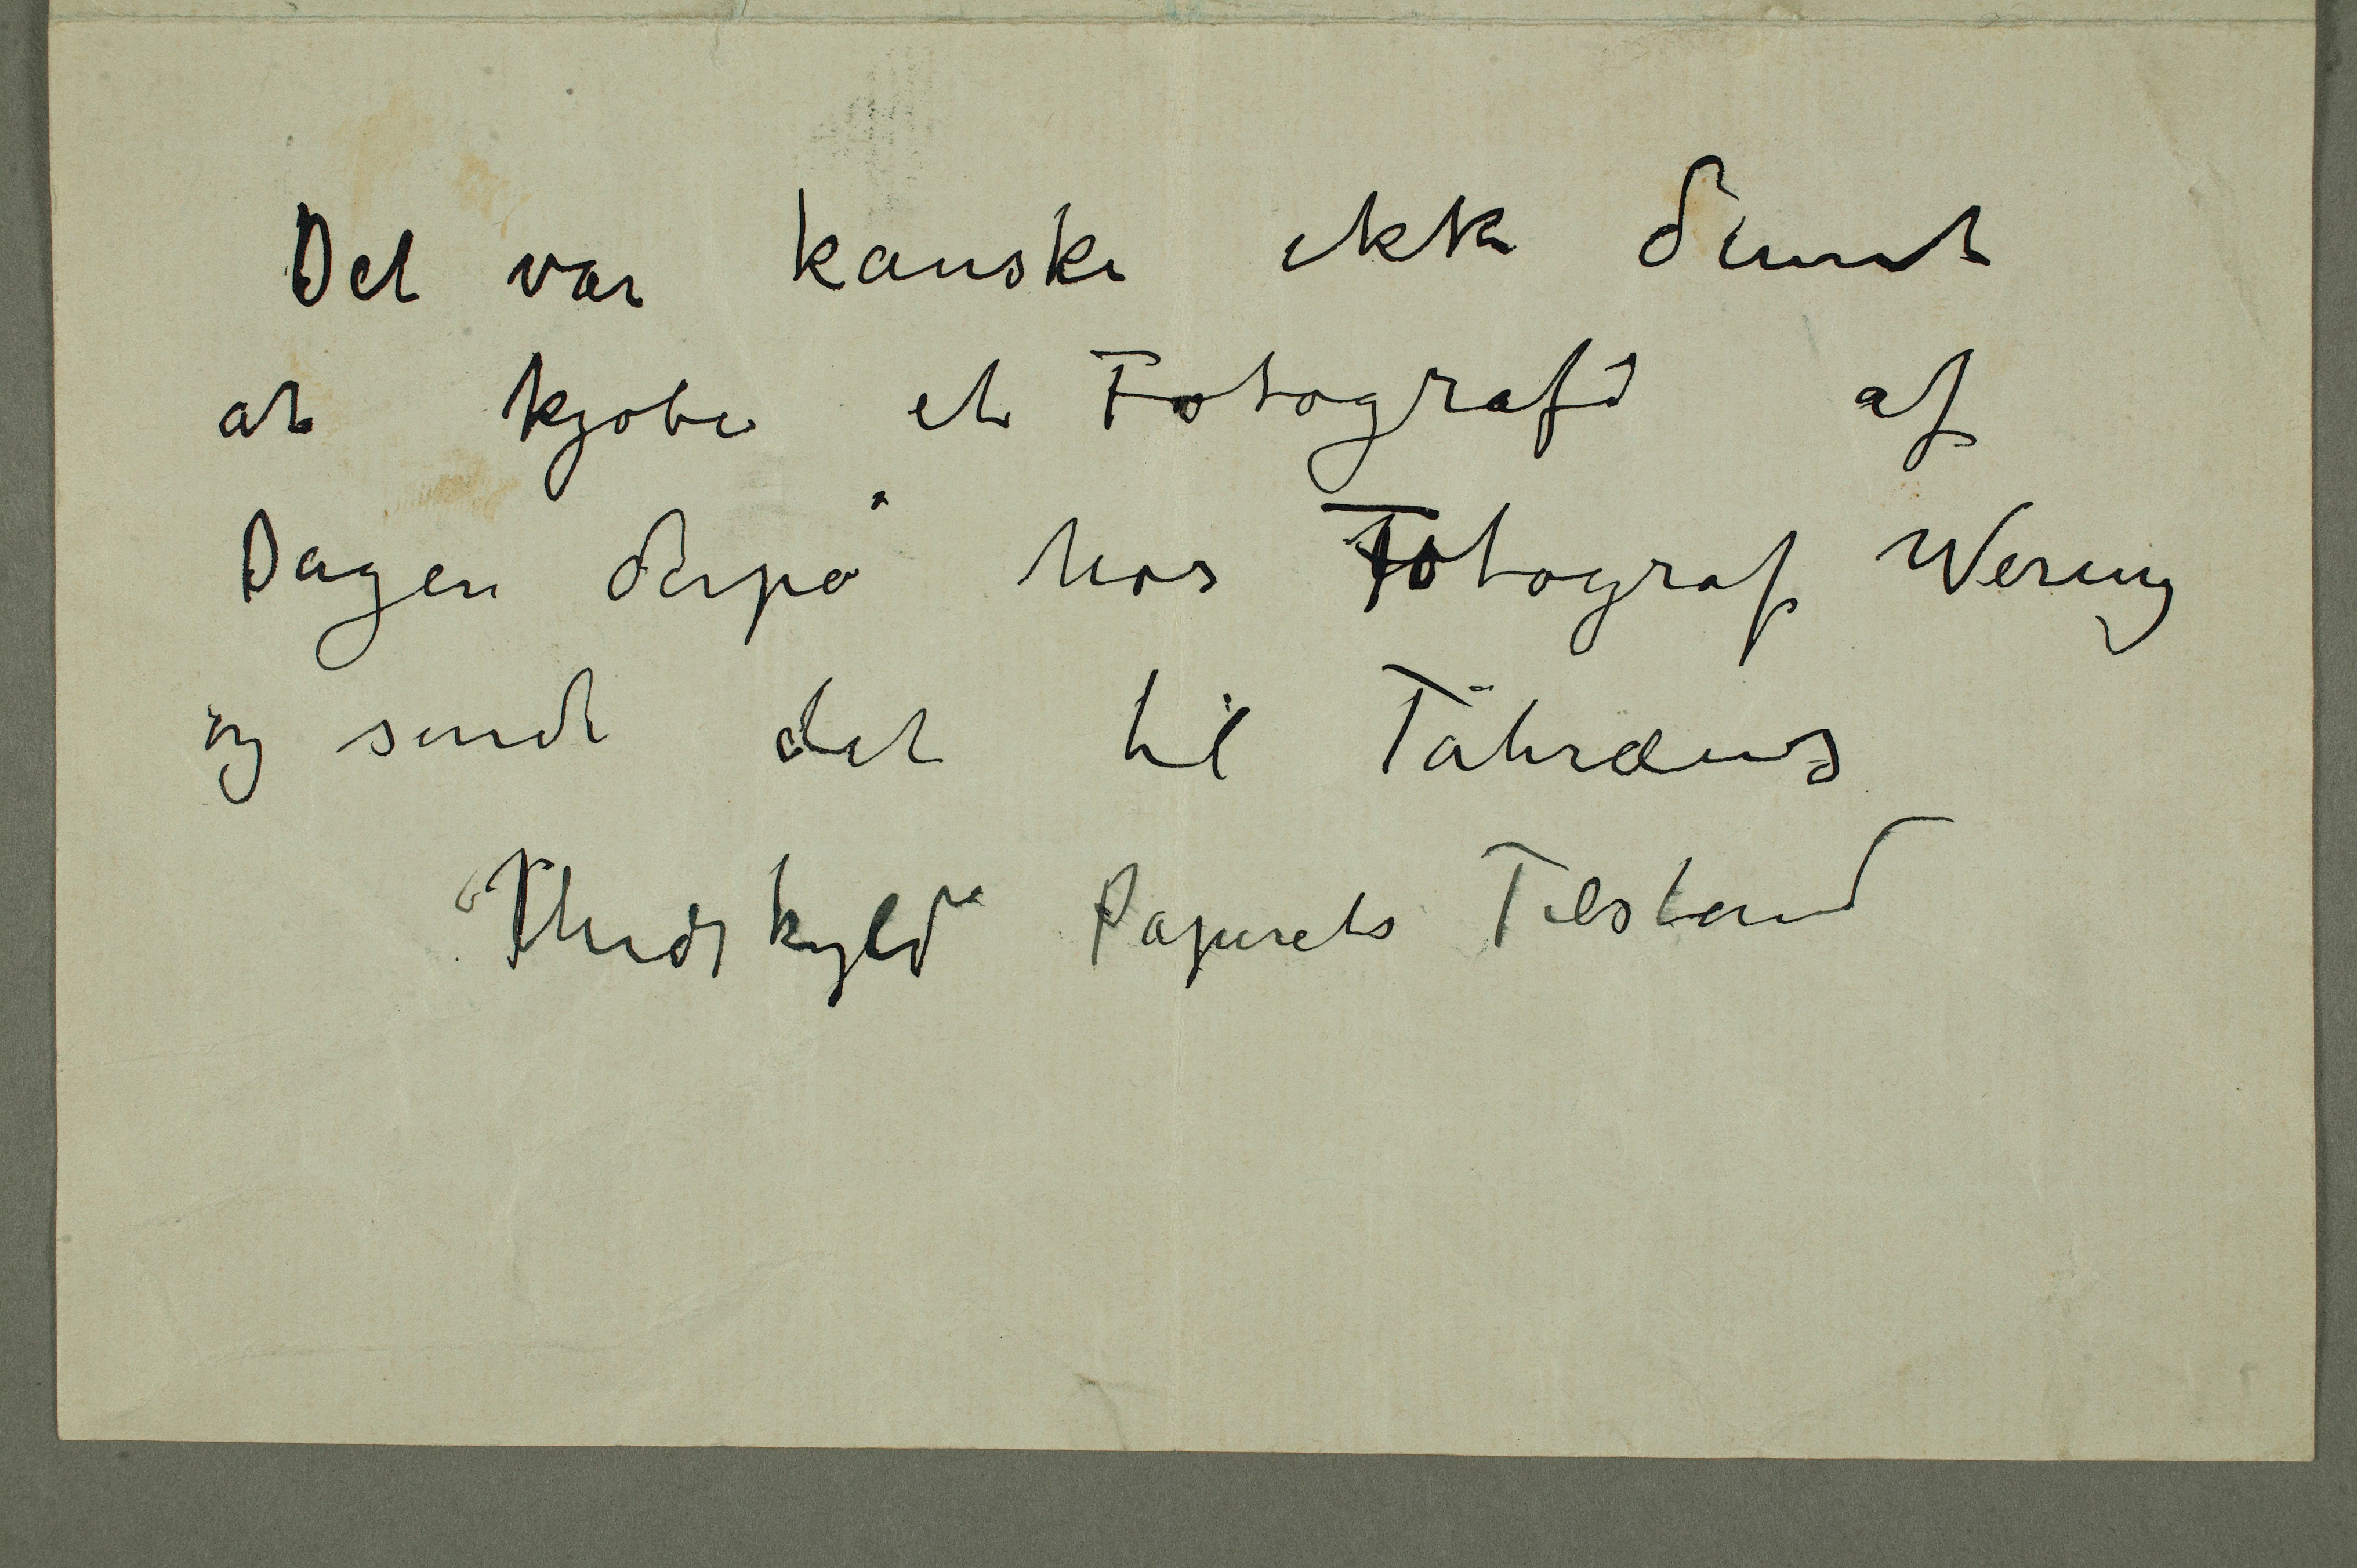 Det var kanske ikke dumt
at kjøbe et Fotografi af
Dagen derpå hos Fotograf Wering
og sende det til Fåhræus
Undskyld Papirets Tilstand